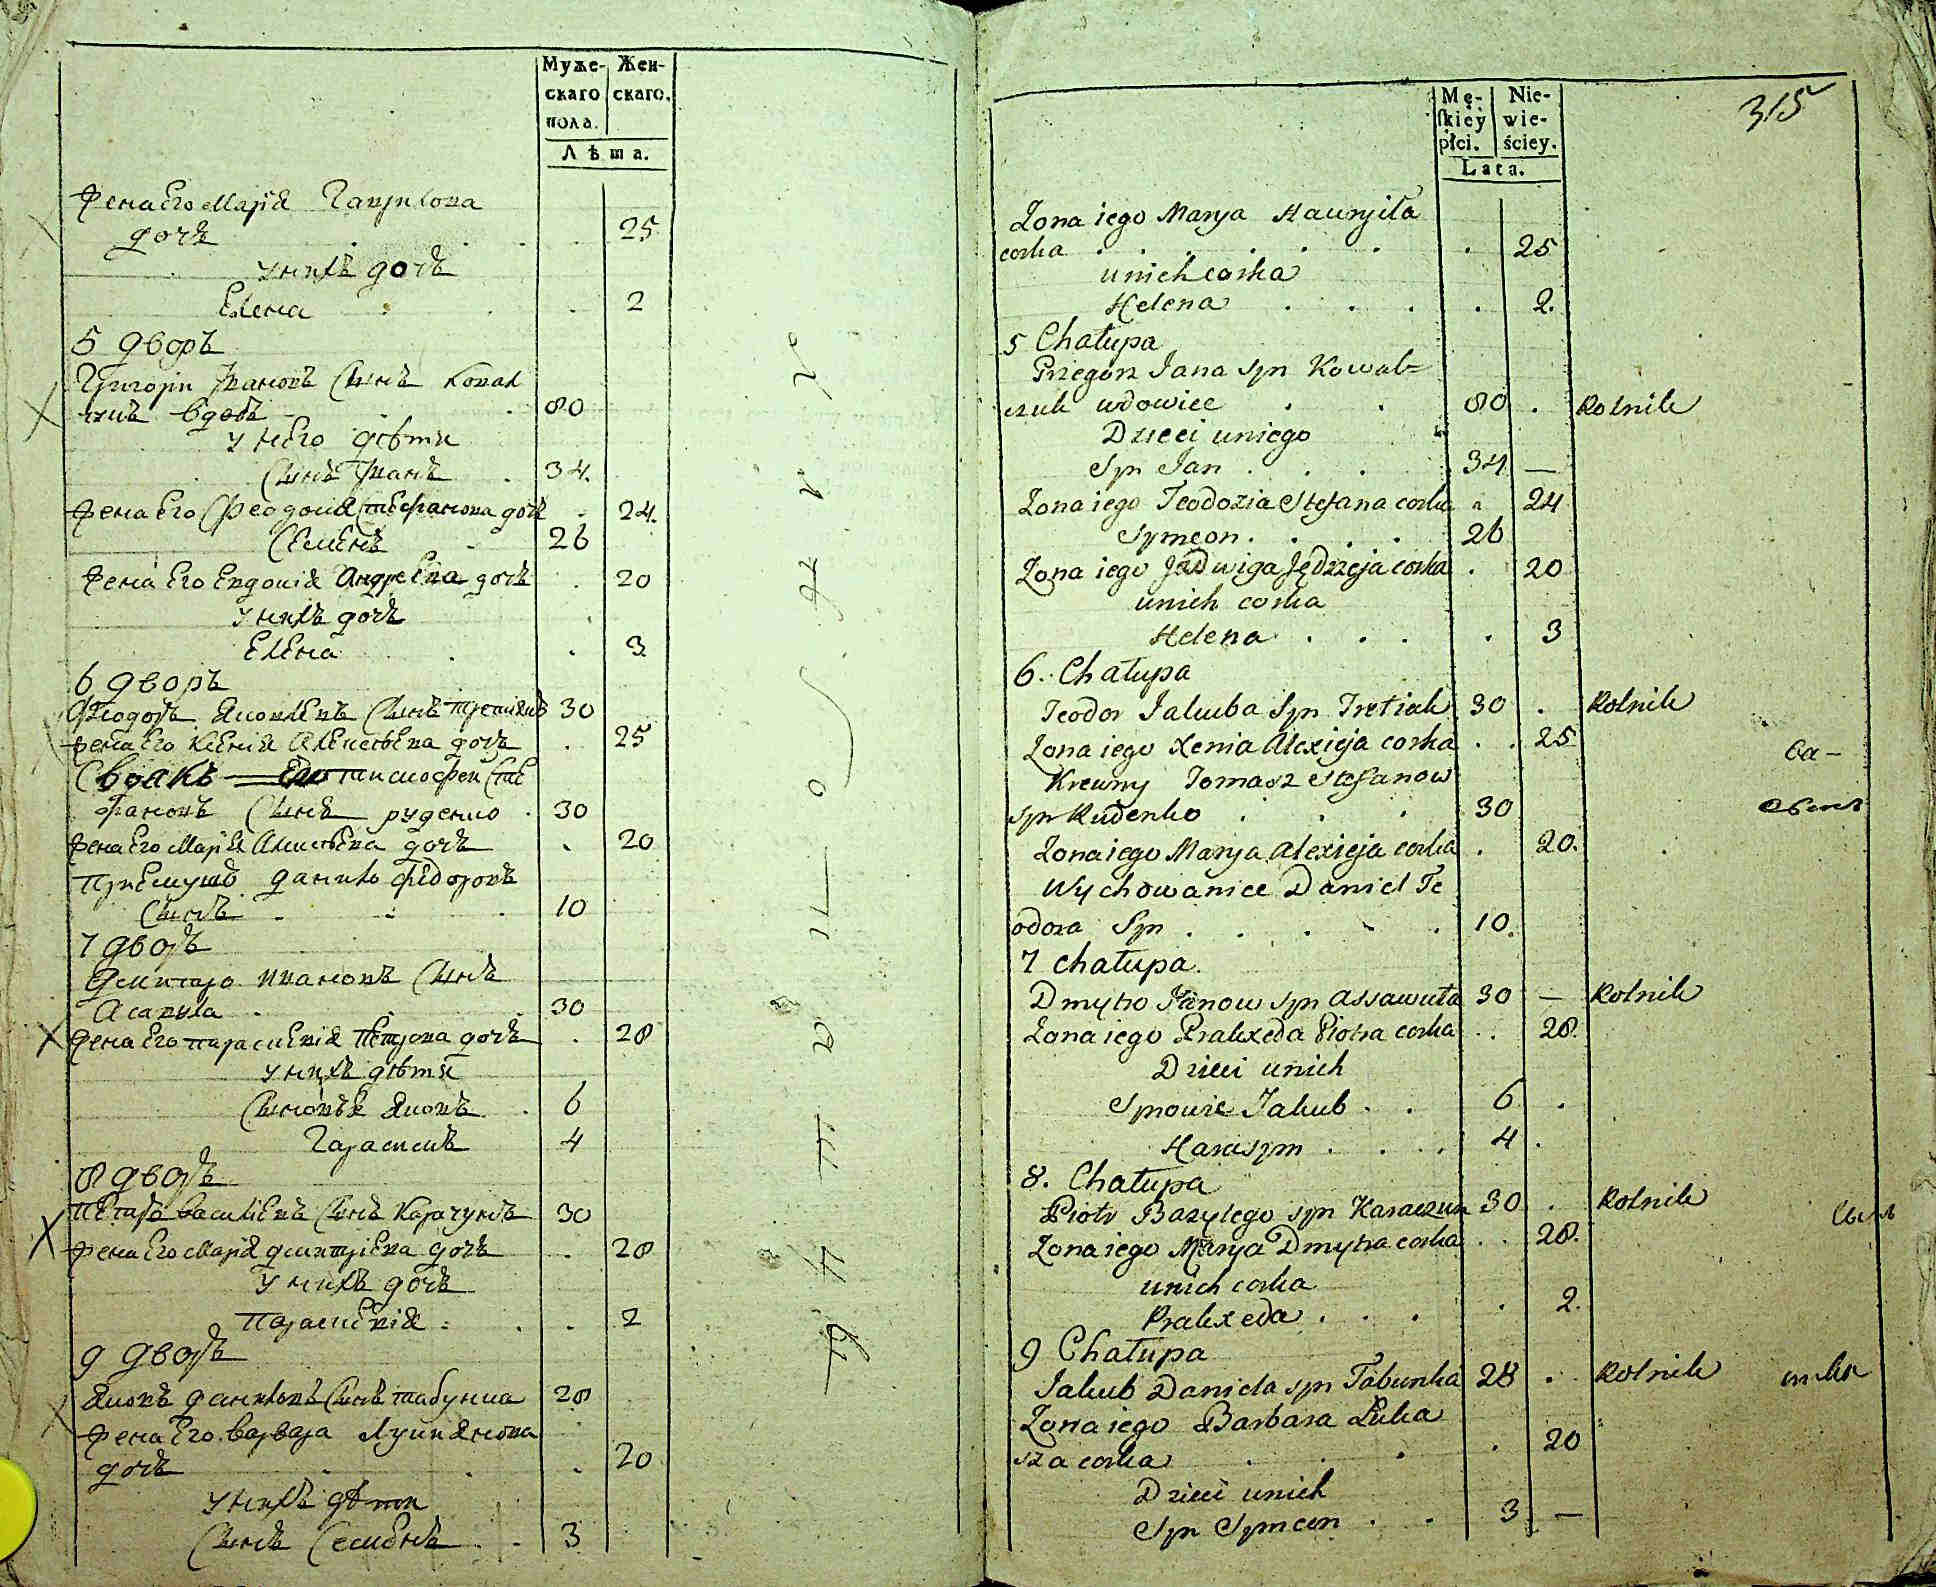 Муже-
скаго
пола.
Жен-
скаго.
Лѣта.
Жена Его Марія Гаврилова
дочь 25
у нихъ дочь
Елена 2
5 дворъ
Григорій Ивановъ Сынъ Ковал
чукъ вдовъ 80
у него дѣти
Сынъ Иванъ 34.
Жена Его Феодосія Стефанова дочь 24.
Семенъ 26
Жена Его Евдокія Андреева дочь 20
у нихъ дочь
Елена 3
6 дворъ
Феодоръ Яковлевъ Сынъ Третякъ 30
Жена Его Ксенія Алексѣева дочь 25
Своякъ Тимофей Сте
фановъ Сынъ руденко 30
Жена Его Марія Алексѣева дочь 20
Приемушъ данило Федоровъ
Сынъ 10
7 дворъ
Дмитро Ивановъ Сынъ
Асавула 30
Жена Его Параскевія Петрова дочь 28
у нихъ дѣти
Сыновья Яковъ 6
Гарасимъ 4
8 дворъ
Петръ Василіевъ Сынъ Карачунъ 30
Жена Его Марія дмитріева дочь 28
у нихъ дочь
Параскевія 2
9 дворъ
Яковъ даниловъ Сынъ табунка 28
Жена Его варвара Лукиянова
дочь 20
у нихъ дѣти
Сынъ Семенъ 3
315
Mę-
skiey
płci.
Nie-
wie-
ściey.
Lata.
Zona iego Marya Hauryiła
corka 25
unich corka
Helena 2.
5 Chałupa
Grzegorz Jana syn Kowal=
czuk wdowiec 80 Rolnik
Dzieci uniego
Syn Jan 34 —
Zona iego Teodozia Stefana corka 24
Symeon 26
Zona iego Jadwiga Jędrzeja corka 20
unich corka
Helena 3
6. Chałupa
Teodor Jakuba Syn Tretiak 30 Rolnik
Zona iego Xenia Alexieja corka 25
Krewny Tomasz Stefanow
syn Rudenko 30
Zona iego Marya Alexieja corka 20.
Wychowaniec Daniel Te
odora Syn 10.
7 chałupa.
Dmytro Janow syn Assawuła 30 — Rolnik
Zona iego Praxeda Piotra corka 28.
Dzieci unich
Synowie Jakub 6
Harasym 4
8. Chałupa
Piotr Bazylego syn Karaczun 30 Rolnik
Zona iego Marya Dmytra corka 28.
unich corka
Praxeda 2.
9 Chałupa
Jakub Daniela syn Tabunka 28 Rolnik
Zona iego Barbara Łuka
sza corka 20
Dzieci unich
Syn Symeon 3 —